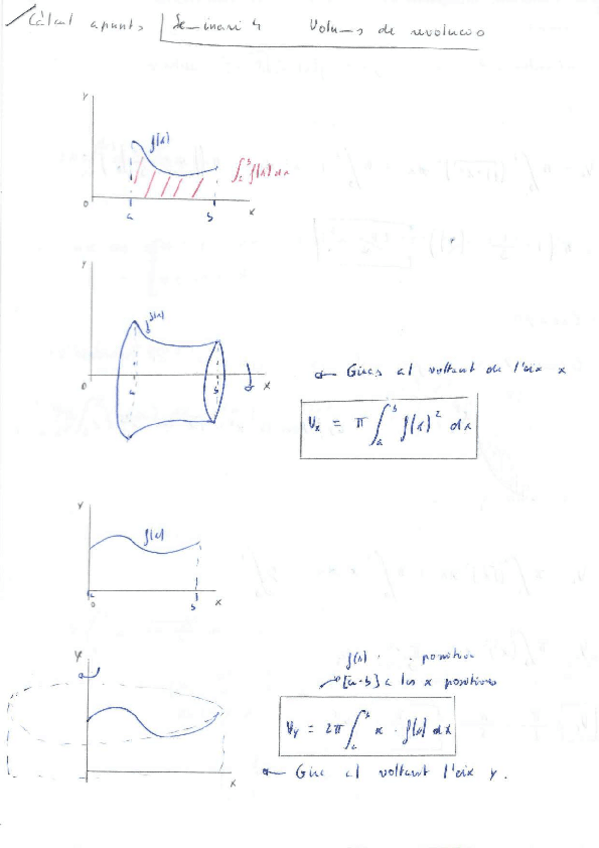 Càlcul apunts | Seminari 4 Volums de revolució
y
f(x)
∫ₐᵇ f(x) dx
0 a b x
y
f(x)
0 a b x
← Gires al voltant de l'eix x
Vx = π ∫ₐᵇ f(x)² dx
y
f(x)
a
0 b x
y
f(x) positiva
[a-b] a les x positives
Vy = 2π ∫ₐᵇ x · f(x) dx
x
← Gira al voltant l'eix y.